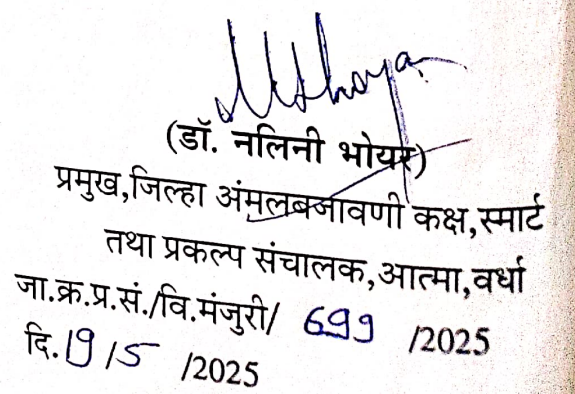 (डॉ. नलिनी भोयर)
प्रमुख,जिल्हा अंमलबजावणी कक्ष,स्मार्ट
तथा प्रकल्प संचालक,आत्मा,वर्धा
जा.क्र.प्र.सं./वि.मंजुरी/ 699 /2025
दि.19/5 /2025